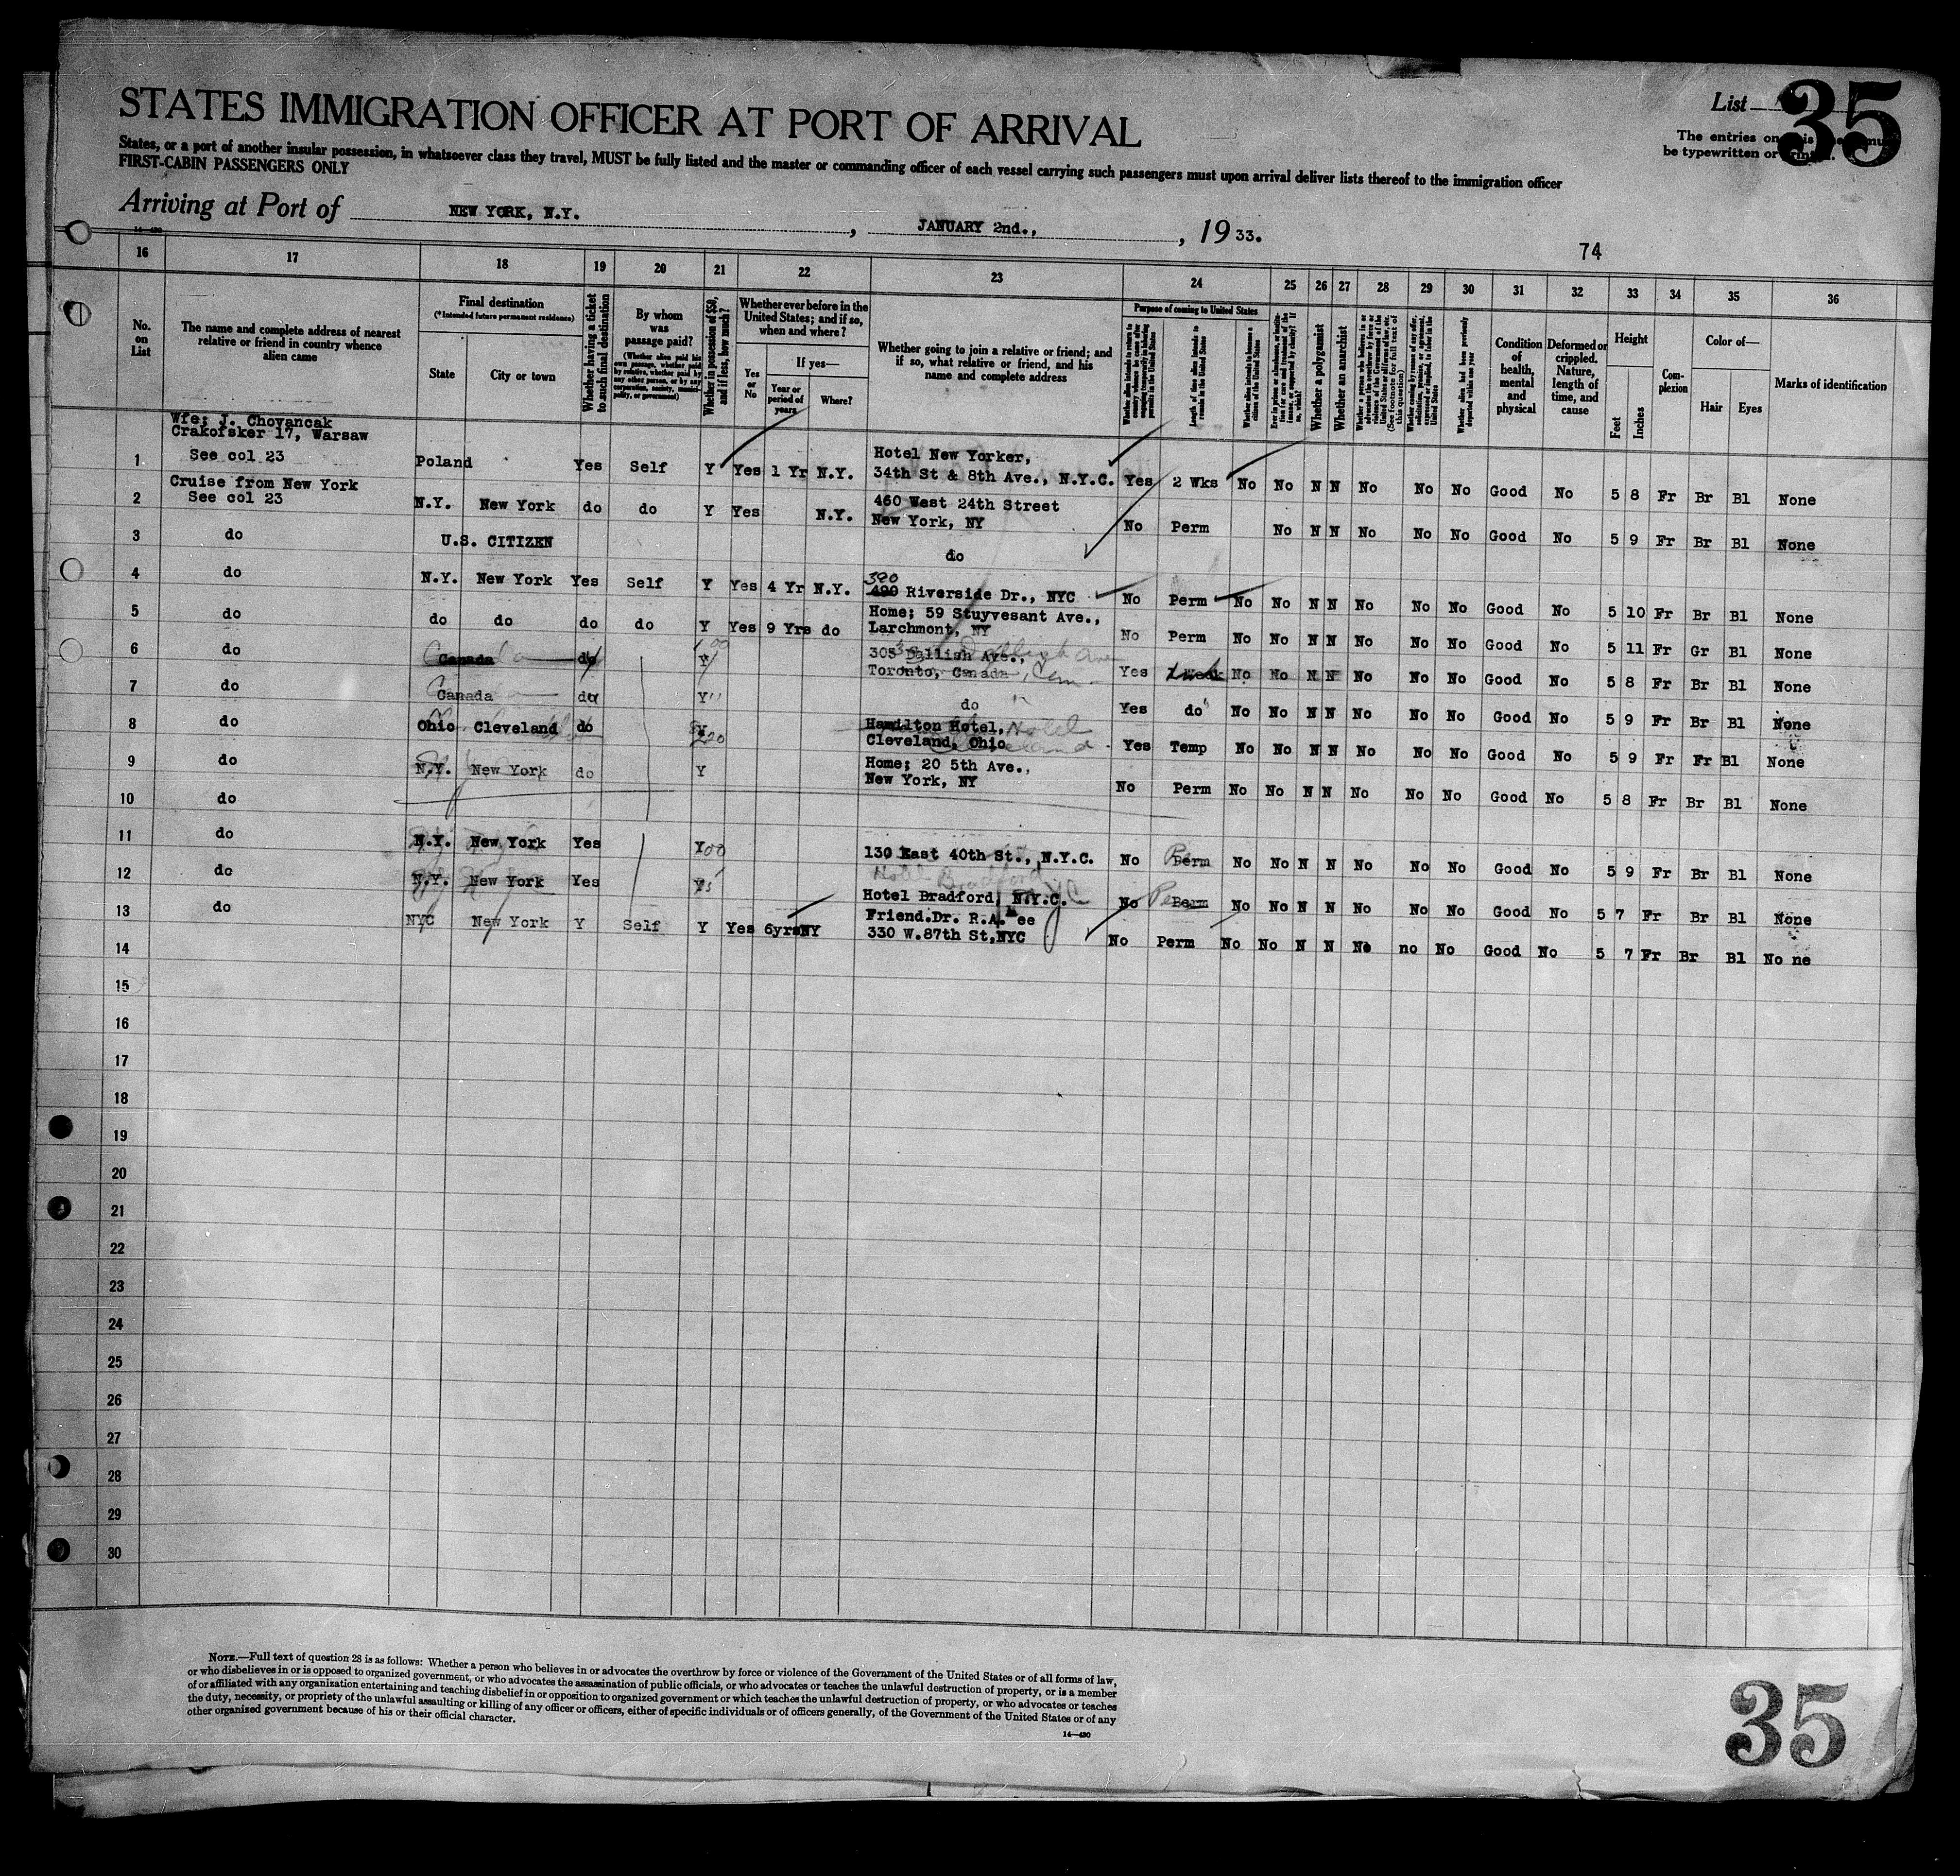 List
35
STATES IMMIGRATION OFFICER AT PORT OF ARRIVAL
The entries on
be typewritten or
States, or a port of another insular possession, in whatsoever class they travel, MUST be fully listed and the master or commanding officer of each vessel carrying such passengers must upon arrival deliver lists thereof to the immigration officer
FIRST-CABIN PASSENGERS ONLY
Arriving at Port of NEW YORK, N.Y. , JANUARY 2nd., , 1933.
14—430
74
16 17 18 19 20 21 22 23 24 25 26 27 28 29 30 31 32 33 34 35 36
No. on List
The name and complete address of nearest relative or friend in country whence alien came
Final destination
(*Intended future permanent residence)
State
City or town
Whether having a ticket to such final destination
By whom was passage paid?
(Whether alien paid his own passage, whether paid by relative, whether paid by any other person, or by any corporation, society, municipality, or government)
Whether in possession of $50, and if less, how much?
Whether ever before in the United States; and if so, when and where?
Yes or No
If yes—
Year or period of years
Where?
Whether going to join a relative or friend; and if so, what relative or friend, and his name and complete address
Purpose of coming to United States
Length of time alien intends to remain in the United States
Whether alien intends to become a citizen of the United States
Whether a polygamist
Whether an anarchist
(See footnote for full text of this question)
Whether alien had been previously deported within one year
Condition of health, mental and physical
Deformed or crippled. Nature, length of time, and cause
Height
Feet
Inches
Complexion
Color of—
Hair
Eyes
Marks of identification
Wfe; J. Choyancak
Crakofsker 17, Warsaw
1 See col 23 Poland Yes Self Y Yes 1 Yr N.Y. Hotel New Yorker,
34th St & 8th Ave., N.Y.C. Yes 2 Wks No No N N No No No Good No 5 8 Fr Br Bl None
Cruise from New York
2 See col 23 N.Y. New York do do Y Yes N.Y. 460 West 24th Street
New York, NY No Perm No N N No No No Good No 5 9 Fr Br Bl None
3 do U.S. CITIZEN do
4 do N.Y. New York Yes Self Y Yes 4 Yr N.Y. 390
490 Riverside Dr., NYC No Perm No No N N No No No Good No 5 10 Fr Br Bl None
5 do do do do do Y Yes 9 Yrs do Home; 59 Stuyvesant Ave.,
Larchmont, NY No Perm No No N N No No No Good No 5 11 Fr Gr Bl None
6 do Canada do Y 305 Dallish Ave.,
Toronto, Canada Yes 1 Week No No N N No No No Good No 5 8 Fr Br Bl None
7 do Canada do Y do Yes do No No N N No No No Good No 5 9 Fr Br Bl None
8 do Ohio Cleveland do Hamilton Hotel, Hotel
Cleveland, Ohio Yes Temp No No N N No No No Good No 5 9 Fr Fr Bl None
9 do N.Y. New York do Y Home; 20 5th Ave.,
New York, NY No Perm No No N N No No No Good No 5 8 Fr Br Bl None
10 do
11 do N.Y. New York Yes 130 East 40th St., N.Y.C. No Perm No No N N No No No Good No 5 9 Fr Br Bl None
Hotel Bradford
12 do N.Y. New York Yes Hotel Bradford, N.Y.C. No Perm No No N N No No No Good No 5 7 Fr Br Bl None
13 do NYC New York Y Self Y Yes 6yrs NY Friend.Dr. R.A. ee
330 W.87th St,NYC No Perm No No N N No no No Good No 5 7 Fr Br Bl No ne
14
15
16
17
18
19
20
21
22
23
24
25
26
27
28
29
30
NOTE.—Full text of question 28 is as follows: Whether a person who believes in or advocates the overthrow by force or violence of the Government of the United States or of all forms of law,
or who disbelieves in or is opposed to organized government, or who advocates the assassination of public officials, or who advocates or teaches the unlawful destruction of property, or is a member
of or affiliated with any organization entertaining and teaching disbelief in or opposition to organized government or which teaches the unlawful destruction of property, or who advocates or teaches
the duty, necessity, or propriety of the unlawful assaulting or killing of any officer or officers, either of specific individuals or of officers generally, of the Government of the United States or of any
other organized government because of his or their official character.
14—430
35